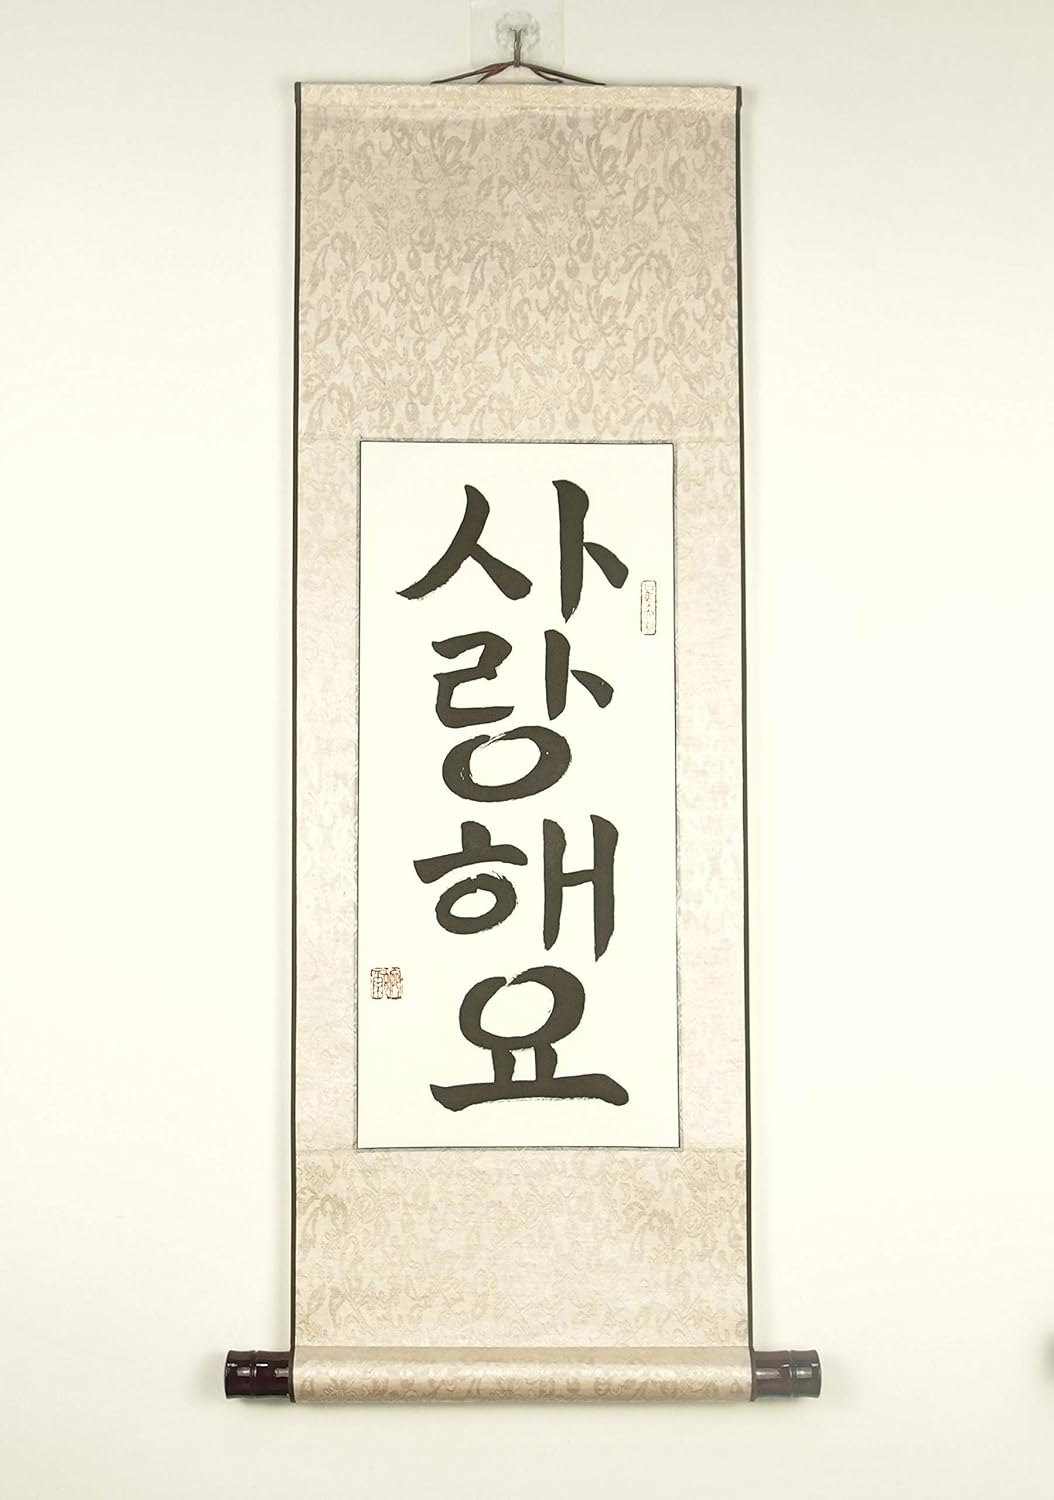 사랑해요